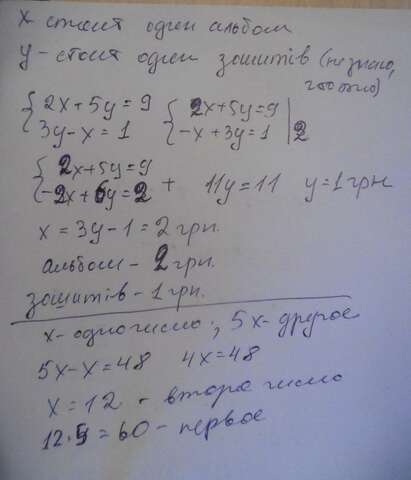 x стоит один альбом
y - стоит один зошитів (не знаю,
что это)
{ 2x+5y=9 { 2x+5y=9 |
{ 3y-x=1 { -x+3y=1 | 2
{ 2x+5y=9
{ -2x+6y=2 + 11y=11 y=1 грн
x = 3y-1 = 2 грн.
альбом - 2 грн.
зошитів - 1 грн.
x - одно число, 5x - другое
5x-x=48 4x=48
x = 12 - второе число
12·5=60 - первое